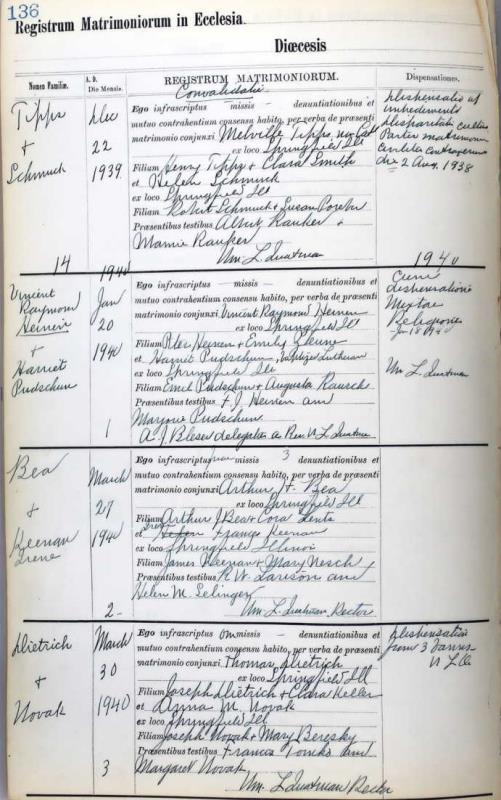 136
Registrum Matrimoniorum in Ecclesia.
Diœcesis
Nomen Familiæ.
A. D.
Die Mensis.
REGISTRUM MATRIMONIORUM.
Dispensationes.
Convalidatio
Tipps
+
Schmuck
Dec
22
1939
Ego infrascriptus missis — denuntiationibus et
mutuo contrahentium consensu habito, per verba de præsenti
matrimonio conjunxi Melville Tipps, non Cath
ex loco Springfield Ill
Filium Henry Tipps & Clara Smith
et Helen Schmuck
ex loco Springfield Ill
Filiam Robert Schmuck & Susan
Præsentibus testibus Albert Rauker &
Mamie Rauker
Wm L
Dispensatio ab
impedimento
disparitatis cultus
Partes matrimonium
civiliter contraxerunt
die 2 Aug. 1938
14
1940
1940
Vincent
Raymond
Heinen
+
Harriet
Pudschun
Jan
20
1940
Ego infrascriptus — missis — denuntiationibus et
mutuo contrahentium consensu habito, per verba de præsenti
matrimonio conjunxi Vincent Raymond Heinen
ex loco Springfield Ill
Filium Peter Heinen & Emily
et Harriet Pudschun, baptized Lutheran
ex loco Springfield Ill
Filiam Emil Pudschun & Augusta Rausch
Præsentibus testibus F. J. Heinen and
Marjorie Pudschun
A. J. Bleser delegatus a Rev W L
Cum
dispensatione
Mixtae
Religionis
Jan 18 1940
Wm L
1
Bea
+
Keenan
Irene
March
27
1940
Ego infrascriptus 3 denuntiationibus et
mutuo contrahentium consensu habito, per verba de præsenti
matrimonio conjunxi Arthur F. Bea
ex loco Springfield Ill
Filium Arthur J Bea & Cora Lents
et Irene Frances Keenan
ex loco Springfield Illinois
Filiam James Keenan & Mary Nesch
Præsentibus testibus R. W. Larison and
Helen M. Selinger
Wm. L. Rector
2
Dietrich
+
Novak
March
30
1940
Ego infrascriptus omissis — denuntiationibus et
mutuo contrahentium consensu habito, per verba de præsenti
matrimonio conjunxi Thomas Dietrich
ex loco Springfield Ill
Filium Joseph Dietrich & Clara Keller
et Anna M. Novak
ex loco Springfield Ill
Filiam Joseph Novak & Mary Beresky
Præsentibus testibus Frances Tomko and
Margaret Novak
Wm. L Rector
Dispensatio
from 3 banns
3